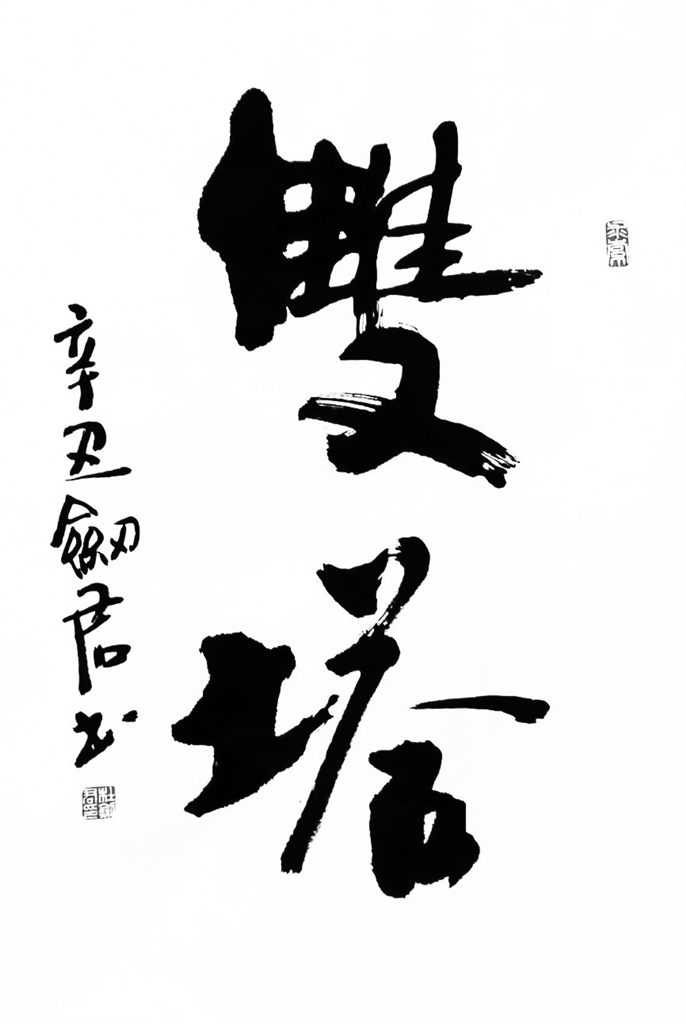 雙塔
辛丑劍君书